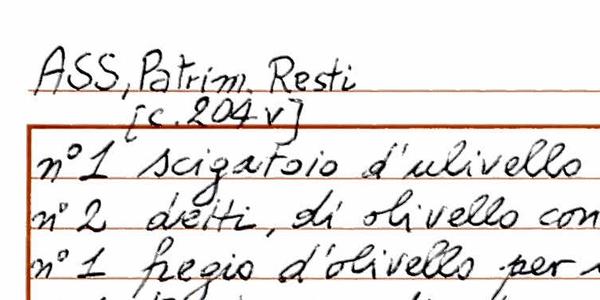 ASS, Patrim. Resti
[c. 204 v]
n° 1 scigatoio d'ulivello
n° 2 detti, di olivello con
n° 1 fregio d'olivello per